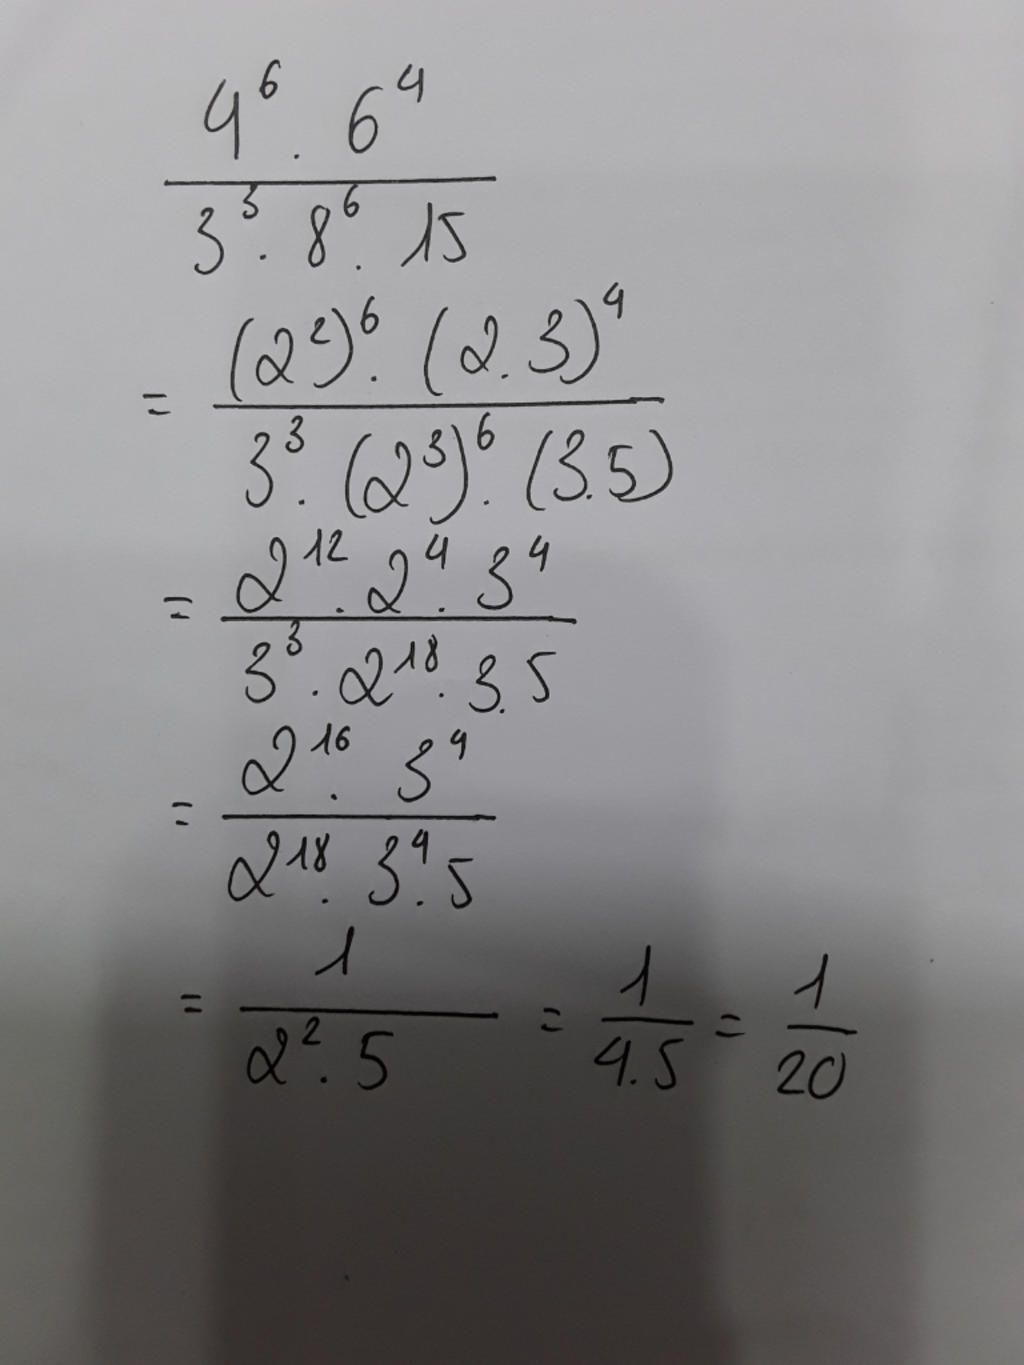 4⁶ . 6⁴
3³ . 8⁶ . 15
= (2²)⁶ . (2.3)⁴
3³ . (2³)⁶ . (3.5)
= 2¹² . 2⁴ . 3⁴
3³ . 2¹⁸ . 3.5
= 2¹⁶ . 3⁴
2¹⁸ . 3⁴ . 5
= 1 = 1 = 1
2² . 5 4.5 20